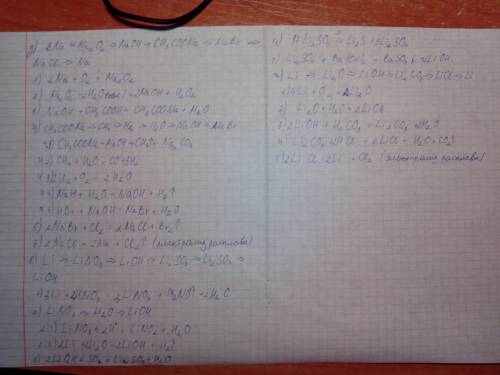 д) 2Na → Na₂O₂ → NaOH → CH₃COONa → NaBr →
NaCl → Na
1) 2Na + O₂ = Na₂O₂
2) Na₂O₂ + 2H₂O = 2NaOH + H₂O₂
3) NaOH + CH₃COOH = CH₃COONa + H₂O
4) CH₃COONa → CH₄ → H₂ → H₂O → NaOH → NaBr
CH₃COONa + NaOH = CH₄ + Na₂CO₃
4.2) CH₄ + H₂O = CO + 3H₂
4.3) 2H₂ + O₂ = 2H₂O
4.4) NaH + H₂O = NaOH + H₂↑
4.5) HBr + NaOH = NaBr + H₂O
5) 2NaBr + Cl₂ = 2NaCl + Br₂↑
6) 2NaCl = 2Na + Cl₂↑ (электролиз расплава)
е) Li → LiNO₃ → LiOH → Li₂SO₃ → Li₂SO₄ →
LiOH
1) 3Li + 4HNO₃ = 3LiNO₃ + NO↑ + 2H₂O
2) LiNO₃ → H₂O → LiOH
2.1) LiNO₃ + 2H⁺ = LiNO₂ + H₂O
2.2) 2Li + 2H₂O = 2LiOH + H₂↑
3) 2LiOH + SO₂ = Li₂SO₃ + H₂O
4) 4Li₂SO₃ = Li₂S + 3Li₂SO₄
5) Li₂SO₄ + Ba(OH)₂ = BaSO₄ + 2LiOH
Li → Li₂O → LiOH → Li₂CO₃ → LiCl → Li
1) 4Li + O₂ = 2Li₂O
2) Li₂O + H₂O = 2LiOH
3) 2LiOH + H₂CO₃ = Li₂CO₃ + 2H₂O
4) Li₂CO₃ + 2HCl = 2LiCl + H₂O + CO₂↑
5) 2LiCl = 2Li + Cl₂ (электролиз расплава)